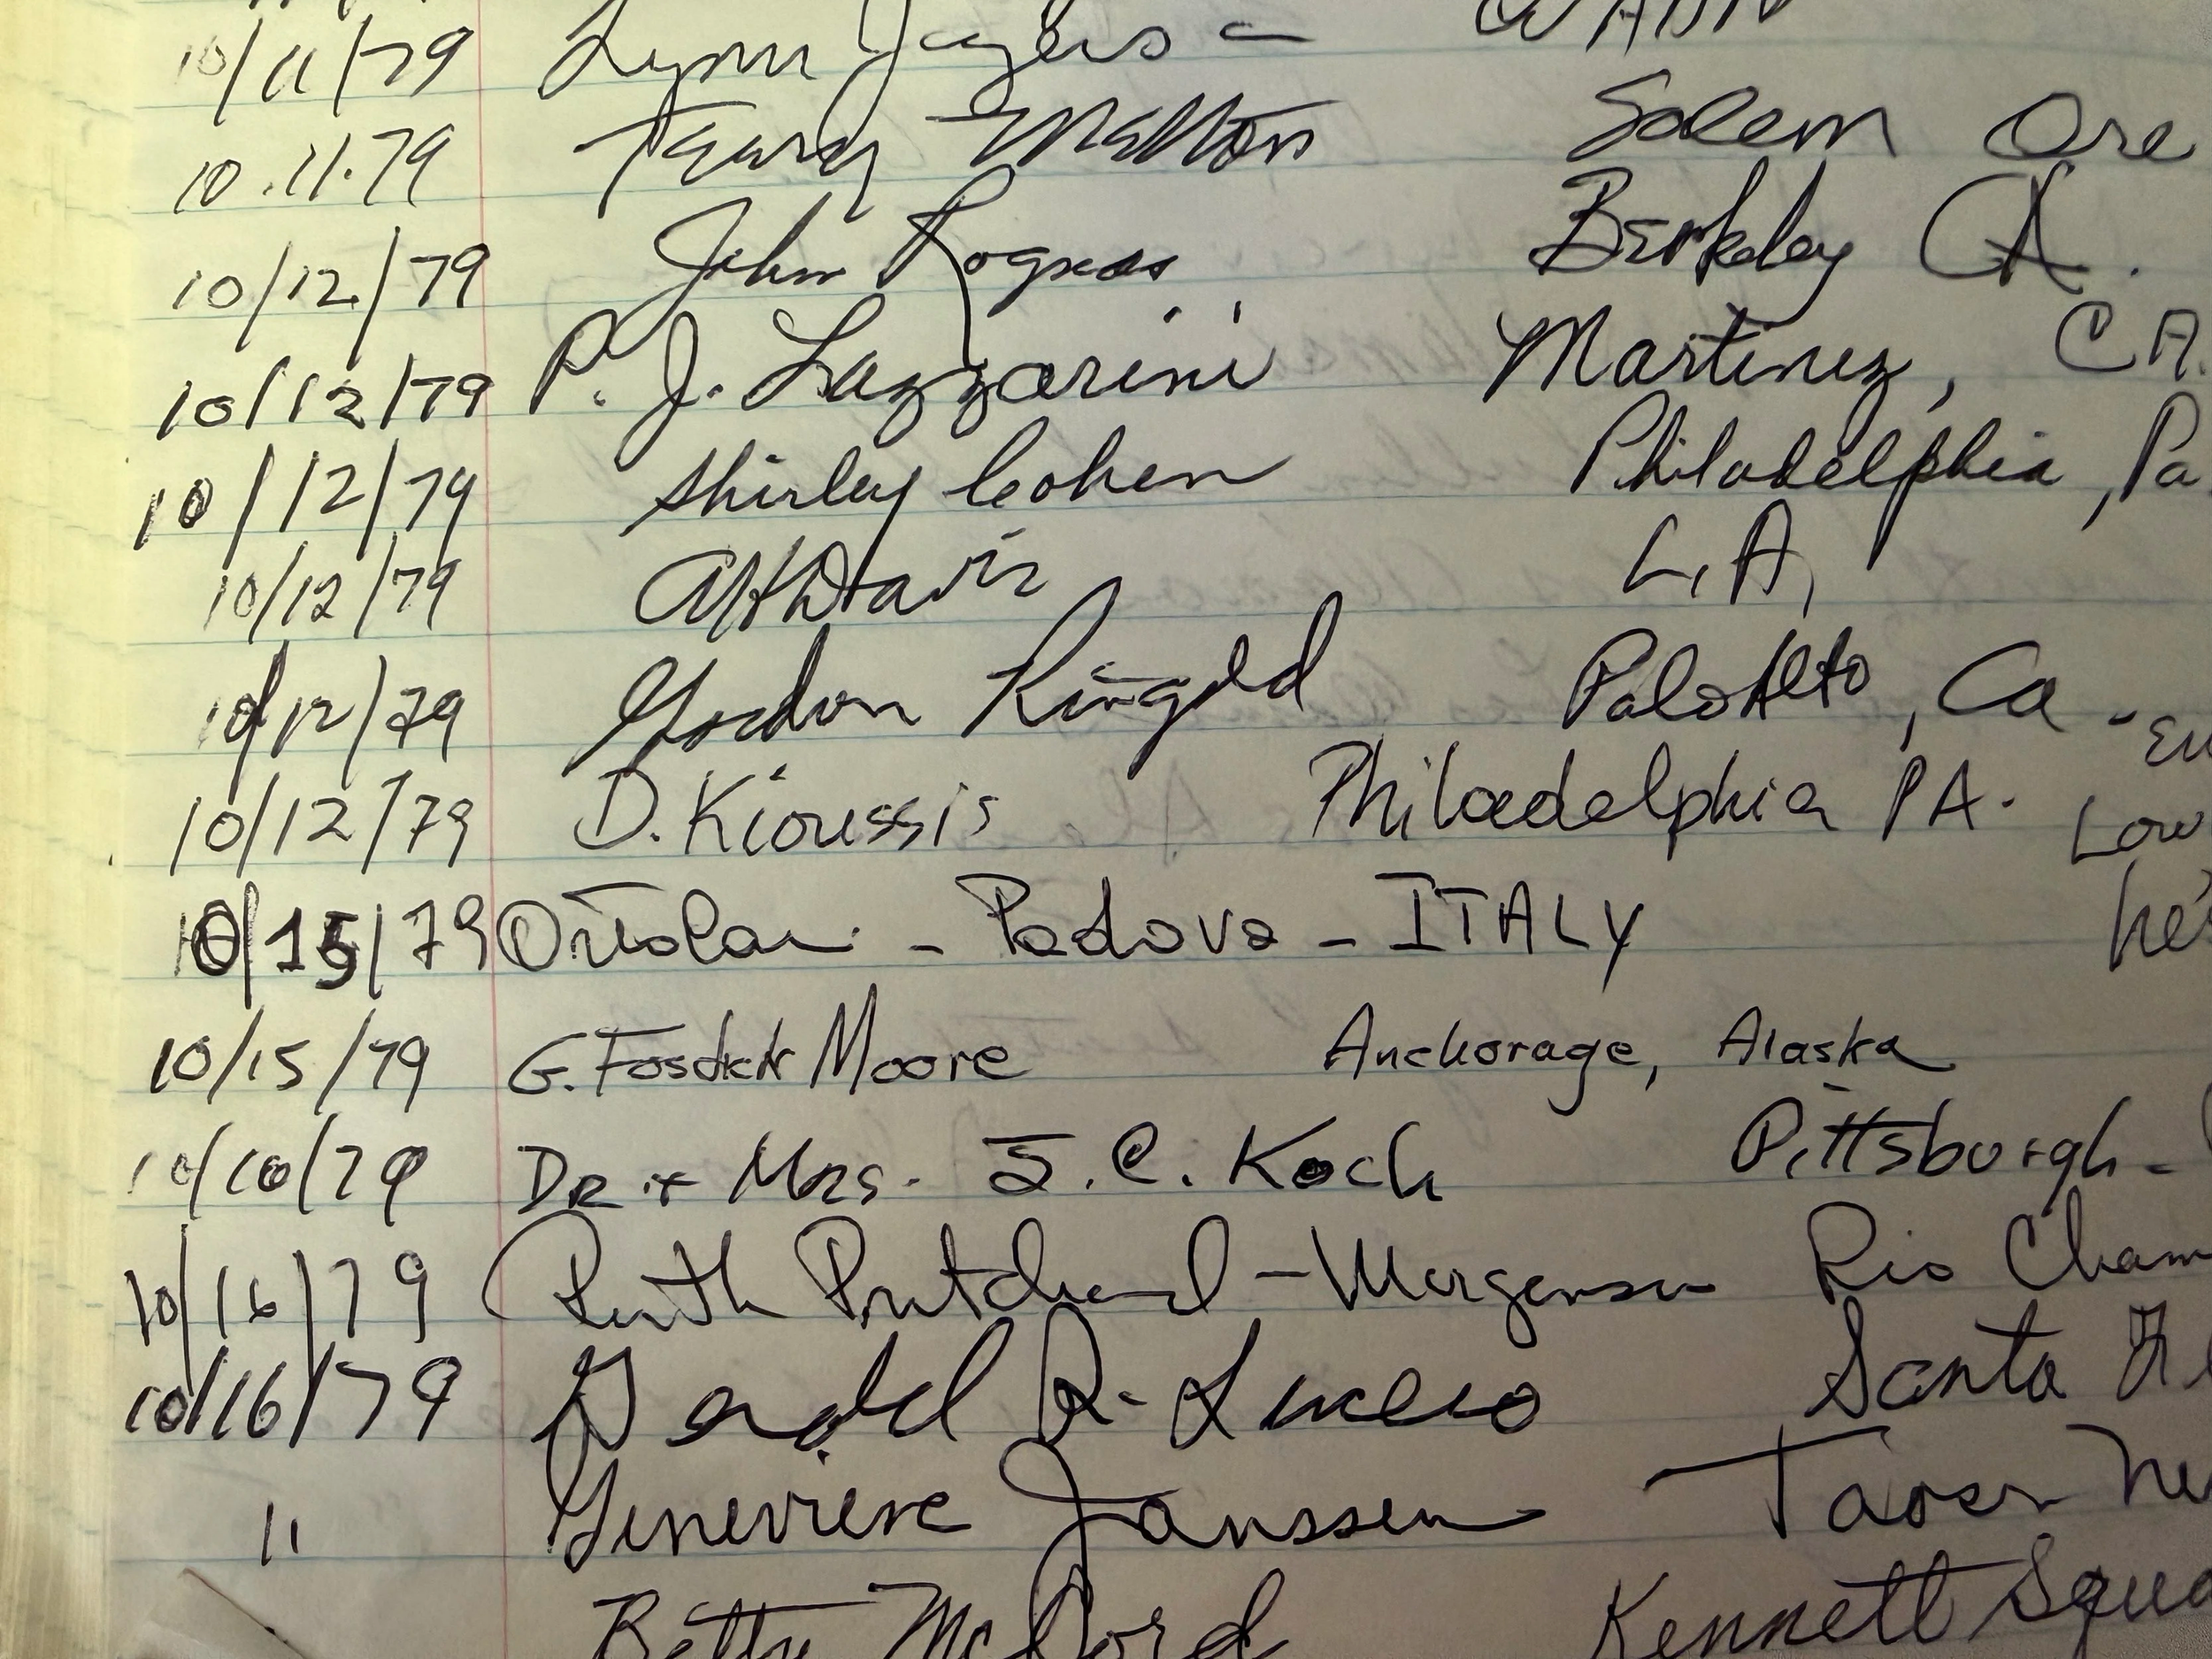 10/11/79 Lynn
10.11.79 Salem Ore
10/12/79 John Berkeley CA.
10/12/79 P. J. Lazzarini Martinez, CA.
10/12/79 Shirley Cohen Philadelphia, Pa
10/12/79 Davis L.A,
10/12/79 Gordon Ringold Palo Alto, Ca -
10/12/79 D. Kioussis Philadelphia PA. Low
10/15/79 Ortolan - Padova - ITALY he's
10/15/79 G. Fosdick Moore Anchorage, Alaska
79 DR + MRS. J. C. Koch Pittsburgh -
10/16/79 Ruth Pritchard - Rio Cham
10/16/79 R. Lucero Santa Fe
11 Genevieve Janssen
Betty McCord Kennett Squa